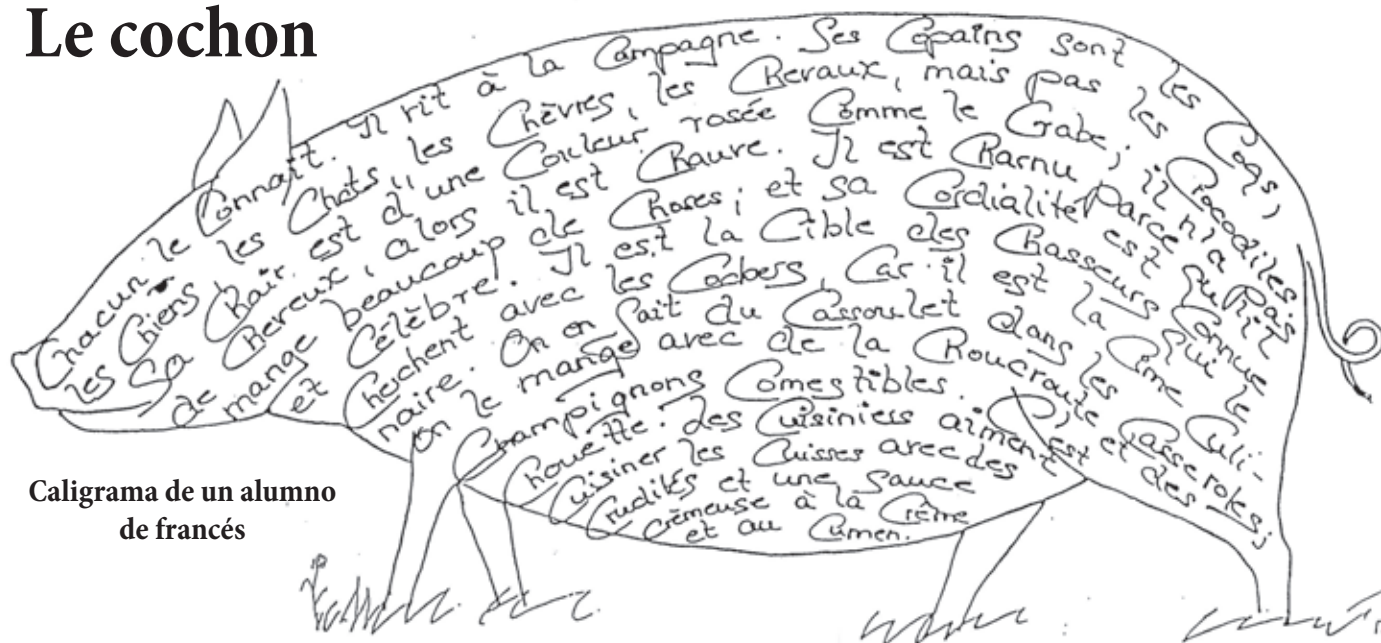 Le cochon
Chacun le Connaît. Il vit à la Campagne. Ses Copains sont les Coqs,
les Chiens, les Chats, les Chèvres, les Chevaux, mais pas les Crocodiles.
Sa Chair est d'une Couleur rosée Comme le Crabe; il n'a pas
de Cheveux, alors il est Chauve. Il est Charnu Parce qu'il
mange beaucoup de Choses; et sa Cordialité est Connue
et Célèbre. Il est la Cible des Chasseurs qui le
Cherchent avec les Cockers, Car il est la Cime Culi-
naire. On en fait du Cassoulet dans les Casseroles;
on le mange avec de la Choucroute et des
Champignons Comestibles. C'est
Chouette. Les Cuisiniers aiment
Cuisiner les Cuisses avec des
Crudités et une sauce
Crèmeuse à la Crème
et au Cumen.
Caligrama de un alumno
de francés